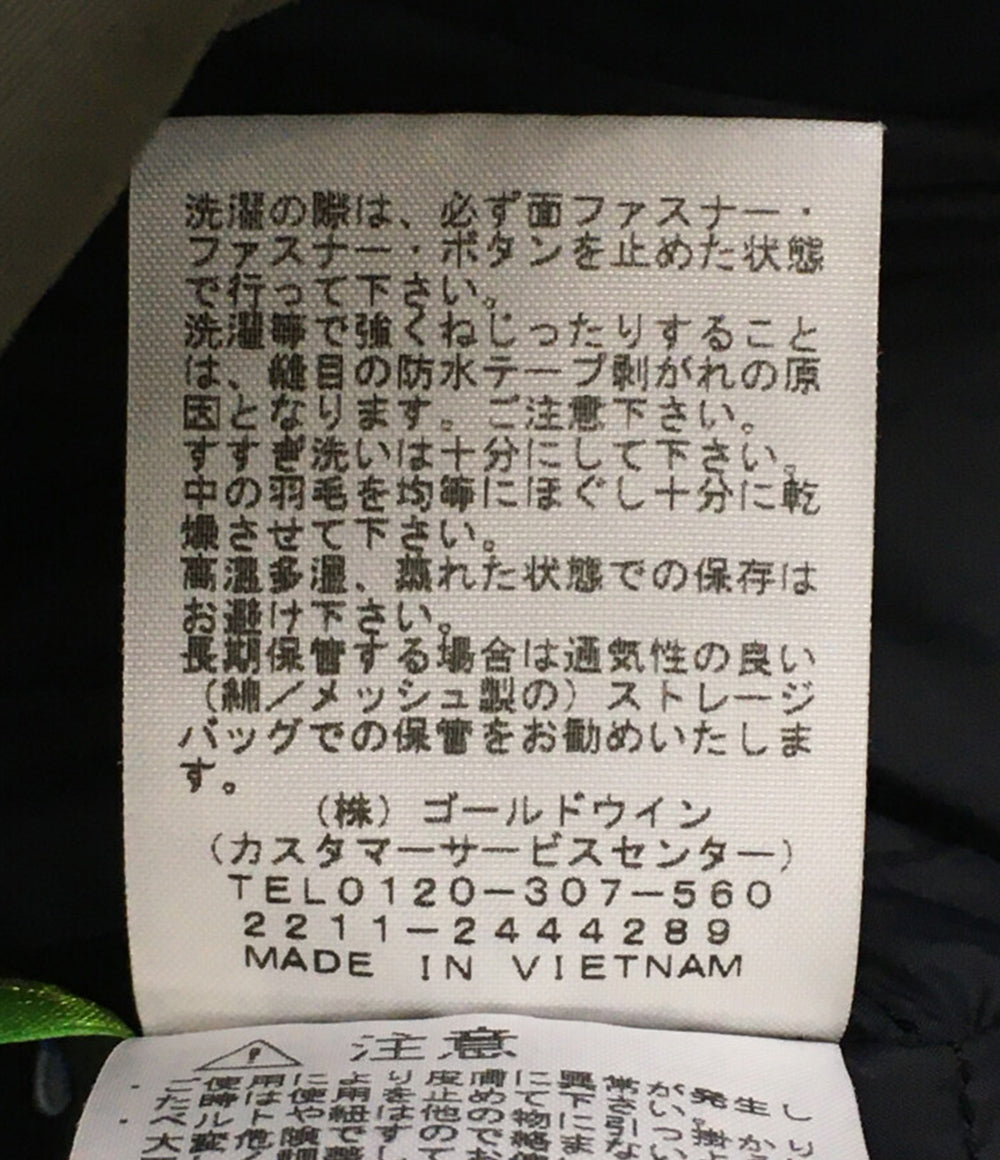 洗濯の際は、必ず面ファスナー・
ファスナー・ボタンを止めた状態
で行って下さい。
洗濯等で強くねじったりすること
は、縫目の防水テープ剥がれの原
因となります。ご注意下さい。
すすぎ洗いは十分にして下さい。
中の羽毛を均等にほぐし十分に乾
燥させて下さい。
高温多湿、蒸れた状態での保存は
お避け下さい。
長期保管する場合は通気性の良い
（綿／メッシュ製の）ストレージ
バッグでの保管をお勧めいたしま
す。
（株）ゴールドウイン
（カスタマーサービスセンター）
TEL0120－307－560
2211－2444289
MADE IN VIETNAM
注意